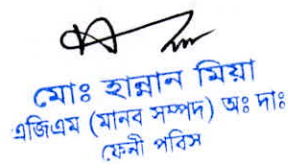 মোঃ হান্নান মিয়া
এজিএম (মানব সম্পদ) অঃ দাঃ
ফেনী পবিস